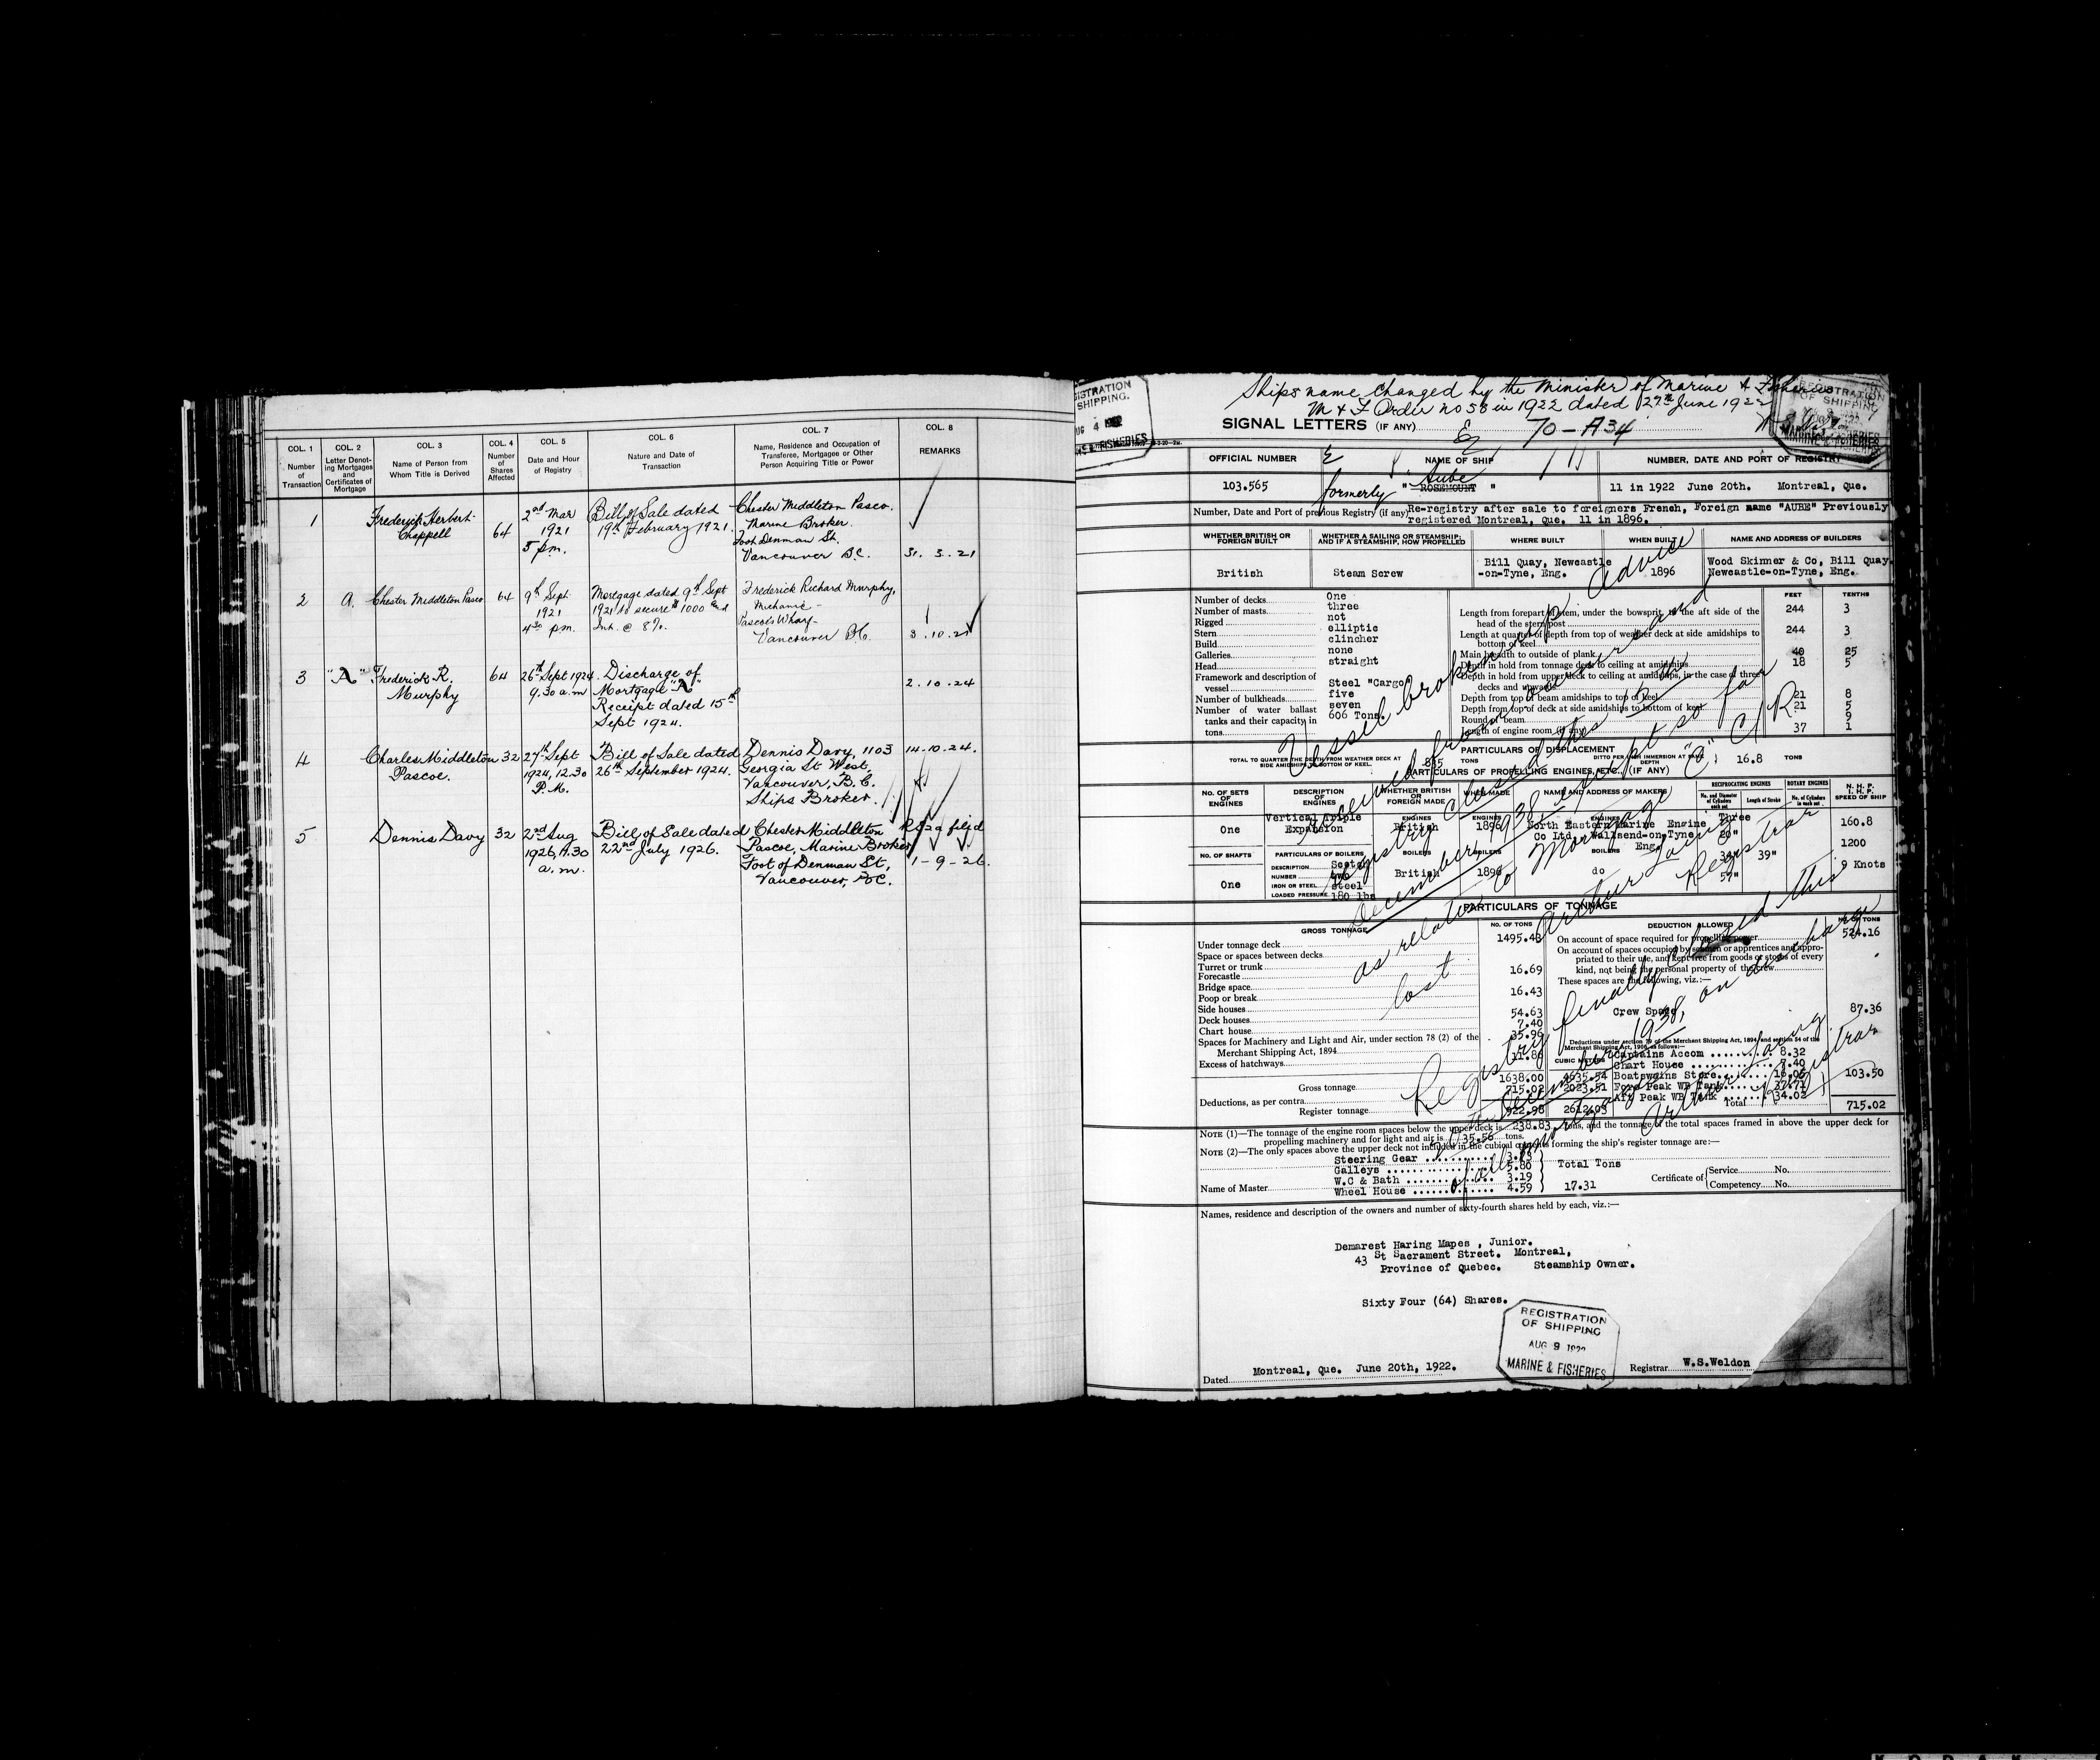 COL. 1
Number
of
Transaction
COL. 2
Letter Denot-
ing Mortgages
and
Certificates of
Mortgage
COL. 3
Name of Person from
Whom Title is Derived
COL. 4
Number
of
Shares
Affected
COL. 5
Date and Hour
of Registry
COL. 6
Nature and Date of
Transaction
COL. 7
Name, Residence and Occupation of
Transferee, Mortgagee or Other
Person Acquiring Title or Power
COL. 8
REMARKS
1
Frederick Herbert
Chappell
64
2nd Mar
1921
5 pm.
Bill of Sale dated
19th February 1921.
Chester Middleton Pasco.
Marine Broker.
Foot Denman St.
Vancouver B.C.
31. 3. 21
2
A.
Chester Middleton Pasco
64
9th Sept
1921
4.30 pm.
Mortgage dated 9th Sept
1921 to secure $1000 and
Int. @ 8%.
Frederick Richard Murphy,
Mechanic -
Pasco's Wharf -
Vancouver B.C.
3. 10. 21
3
"A"
Frederick R.
Murphy
64
26th Sept 1924.
9.30 a.m
Discharge of
Mortgage "A"
Receipt dated 15th
Sept 1924.
2. 10. 24
4
Charles Middleton
Pascoe.
32
27th Sept
1924, 12.30
P.M.
Bill of Sale dated
26th September 1924.
Dennis Davy, 1103
Georgia St West,
Vancouver, B.C.
Ships Broker.
14-10-24.
5
Dennis Davy
32
2nd Aug
1926, 11.30
a.m.
Bill of Sale dated
22nd July 1926.
Chester Middleton
Pascoe, Marine Broker
Foot of Denman St,
Vancouver, B.C.
filed
1-9-26.
Ships name changed by the Minister of Marine & Fisheries
M & F Order no 58 in 1922 dated 27th June 1922
SIGNAL LETTERS (IF ANY)
70-A34
REGISTRATION
OF SHIPPING.
AUG 4 1922
MARINE & FISHERIES
OFFICIAL NUMBER
NAME OF SHIP
NUMBER, DATE AND PORT OF REGISTRY
103.565
Aube
formerly "ROSEMOUNT"
11 in 1922 June 20th. Montreal, Que.
Number, Date and Port of previous Registry (if any) Re-registry after sale to foreigners French, Foreign name "AUBE" Previously
registered Montreal, Que. 11 in 1896.
WHETHER BRITISH OR
FOREIGN BUILT
WHETHER A SAILING OR STEAMSHIP;
AND IF A STEAMSHIP, HOW PROPELLED
WHERE BUILT
WHEN BUILT
NAME AND ADDRESS OF BUILDERS
British
Steam Screw
Bill Quay, Newcastle
-on-Tyne, Eng.
1896
Wood Skinner & Co, Bill Quay,
Newcastle-on-Tyne, Eng.
FEET
TENTHS
Number of decks One
Number of masts three
Rigged not
Stern elliptic
Build clincher
Galleries none
Head straight
Framework and description of
vessel Steel "Cargo"
Number of bulkheads five
Number of water ballast seven
tanks and their capacity in
tons 606 Tons.
Length from forepart of stem, under the bowsprit, to the aft side of the
head of the stern post 244 3
Length at quarter of depth from top of weather deck at side amidships to
bottom of keel 244 3
Main breadth to outside of plank 40 25
Depth in hold from tonnage deck to ceiling at amidships 18 5
Depth in hold from upper deck to ceiling at amidships, in the case of three
decks and upwards
Depth from top of beam amidships to top of keel 21 8
Depth from top of deck at side amidships to bottom of keel 21 5
Round of beam 9
Length of engine room (if any) 37 1
PARTICULARS OF DISPLACEMENT
TOTAL TO QUARTER THE DEPTH FROM WEATHER DECK AT
SIDE AMIDSHIPS TO BOTTOM OF KEEL. 835 TONS
DITTO PER INCH IMMERSION AT SAME
DEPTH 16.8 TONS
PARTICULARS OF PROPELLING ENGINES, ETC., (IF ANY)
NO. OF SETS
OF
ENGINES
DESCRIPTION
OF
ENGINES
WHETHER BRITISH
OR
FOREIGN MADE
WHEN MADE
NAME AND ADDRESS OF MAKERS
RECIPROCATING ENGINES
No. and Diameter
of Cylinders
each set
Length of Stroke
ROTARY ENGINES
No. of Cylinders
in each set
N. H. P.
I. H. P.
SPEED OF SHIP
One
Vertical Triple
Expansion
ENGINES
British
ENGINES
1896
ENGINES
North Eastern Marine Engine
Co Ltd, Wallsend-on-Tyne,
Eng.
Three
20"
34"
57"
39"
160.8
1200
9 Knots
NO. OF SHAFTS
One
PARTICULARS OF BOILERS
DESCRIPTION Scotch
NUMBER two
IRON OR STEEL steel
LOADED PRESSURE 180 lbs
BOILERS
British
BOILERS
1896
BOILERS
do
PARTICULARS OF TONNAGE
GROSS TONNAGE
NO. OF TONS
DEDUCTION ALLOWED
NO. OF TONS
Under tonnage deck 1495.43
Space or spaces between decks
Turret or trunk
Forecastle 16.69
Bridge space
Poop or break 16.43
Side houses
Deck houses 54.63
Chart house 7.40
Spaces for Machinery and Light and Air, under section 78 (2) of the
Merchant Shipping Act, 1894 35.96
Excess of hatchways 11.86
CUBIC METRES
Gross tonnage 1638.00 4635.54
Deductions, as per contra 715.02 2023.51
Register tonnage 922.98 2612.03
On account of space required for propelling power 524.16
On account of spaces occupied by seamen or apprentices and appro-
priated to their use, and kept free from goods or stores of every
kind, not being the personal property of the crew
These spaces are the following, viz.:—
Crew Space 87.36
Deductions under section 79 of the Merchant Shipping Act, 1894 and section 54 of the
Merchant Shipping Act, 1906, as follows:—
Captains Accom 8.32
Chart House 7.40
Boatswains Store
Fore Peak WB Tank 37.71
Aft Peak WB Tank 34.02
103.50
Total 715.02
NOTE (1)—The tonnage of the engine room spaces below the upper deck is 238.83 tons, and the tonnage of the total spaces framed in above the upper deck for
propelling machinery and for light and air is 35.56 tons.
NOTE (2)—The only spaces above the upper deck not included in the cubical contents forming the ship's register tonnage are:—
Steering Gear 3.73
Galleys 5.80
W.C & Bath 3.19
Wheel House 4.59
Total Tons
17.31
Name of Master
Certificate of Service No.
Competency No.
Names, residence and description of the owners and number of sixty-fourth shares held by each, viz.:—
Demarest Haring Mapes, Junior.
43 St Sacrament Street. Montreal,
Province of Quebec. Steamship Owner.
Sixty Four (64) Shares.
Dated Montreal, Que. June 20th, 1922.
REGISTRATION
OF SHIPPING
AUG 9 1922
MARINE & FISHERIES
Registrar W.S.Weldon
Vessel broken up advice
received from owner and
registry closed this 13th
December 1938 except so far
as relates to Mortgage "C"
Arthur Laing
Registrar
lost
Registry finally closed this
December 1938, on discharge
of all mortgages
Arthur Laing
Registrar